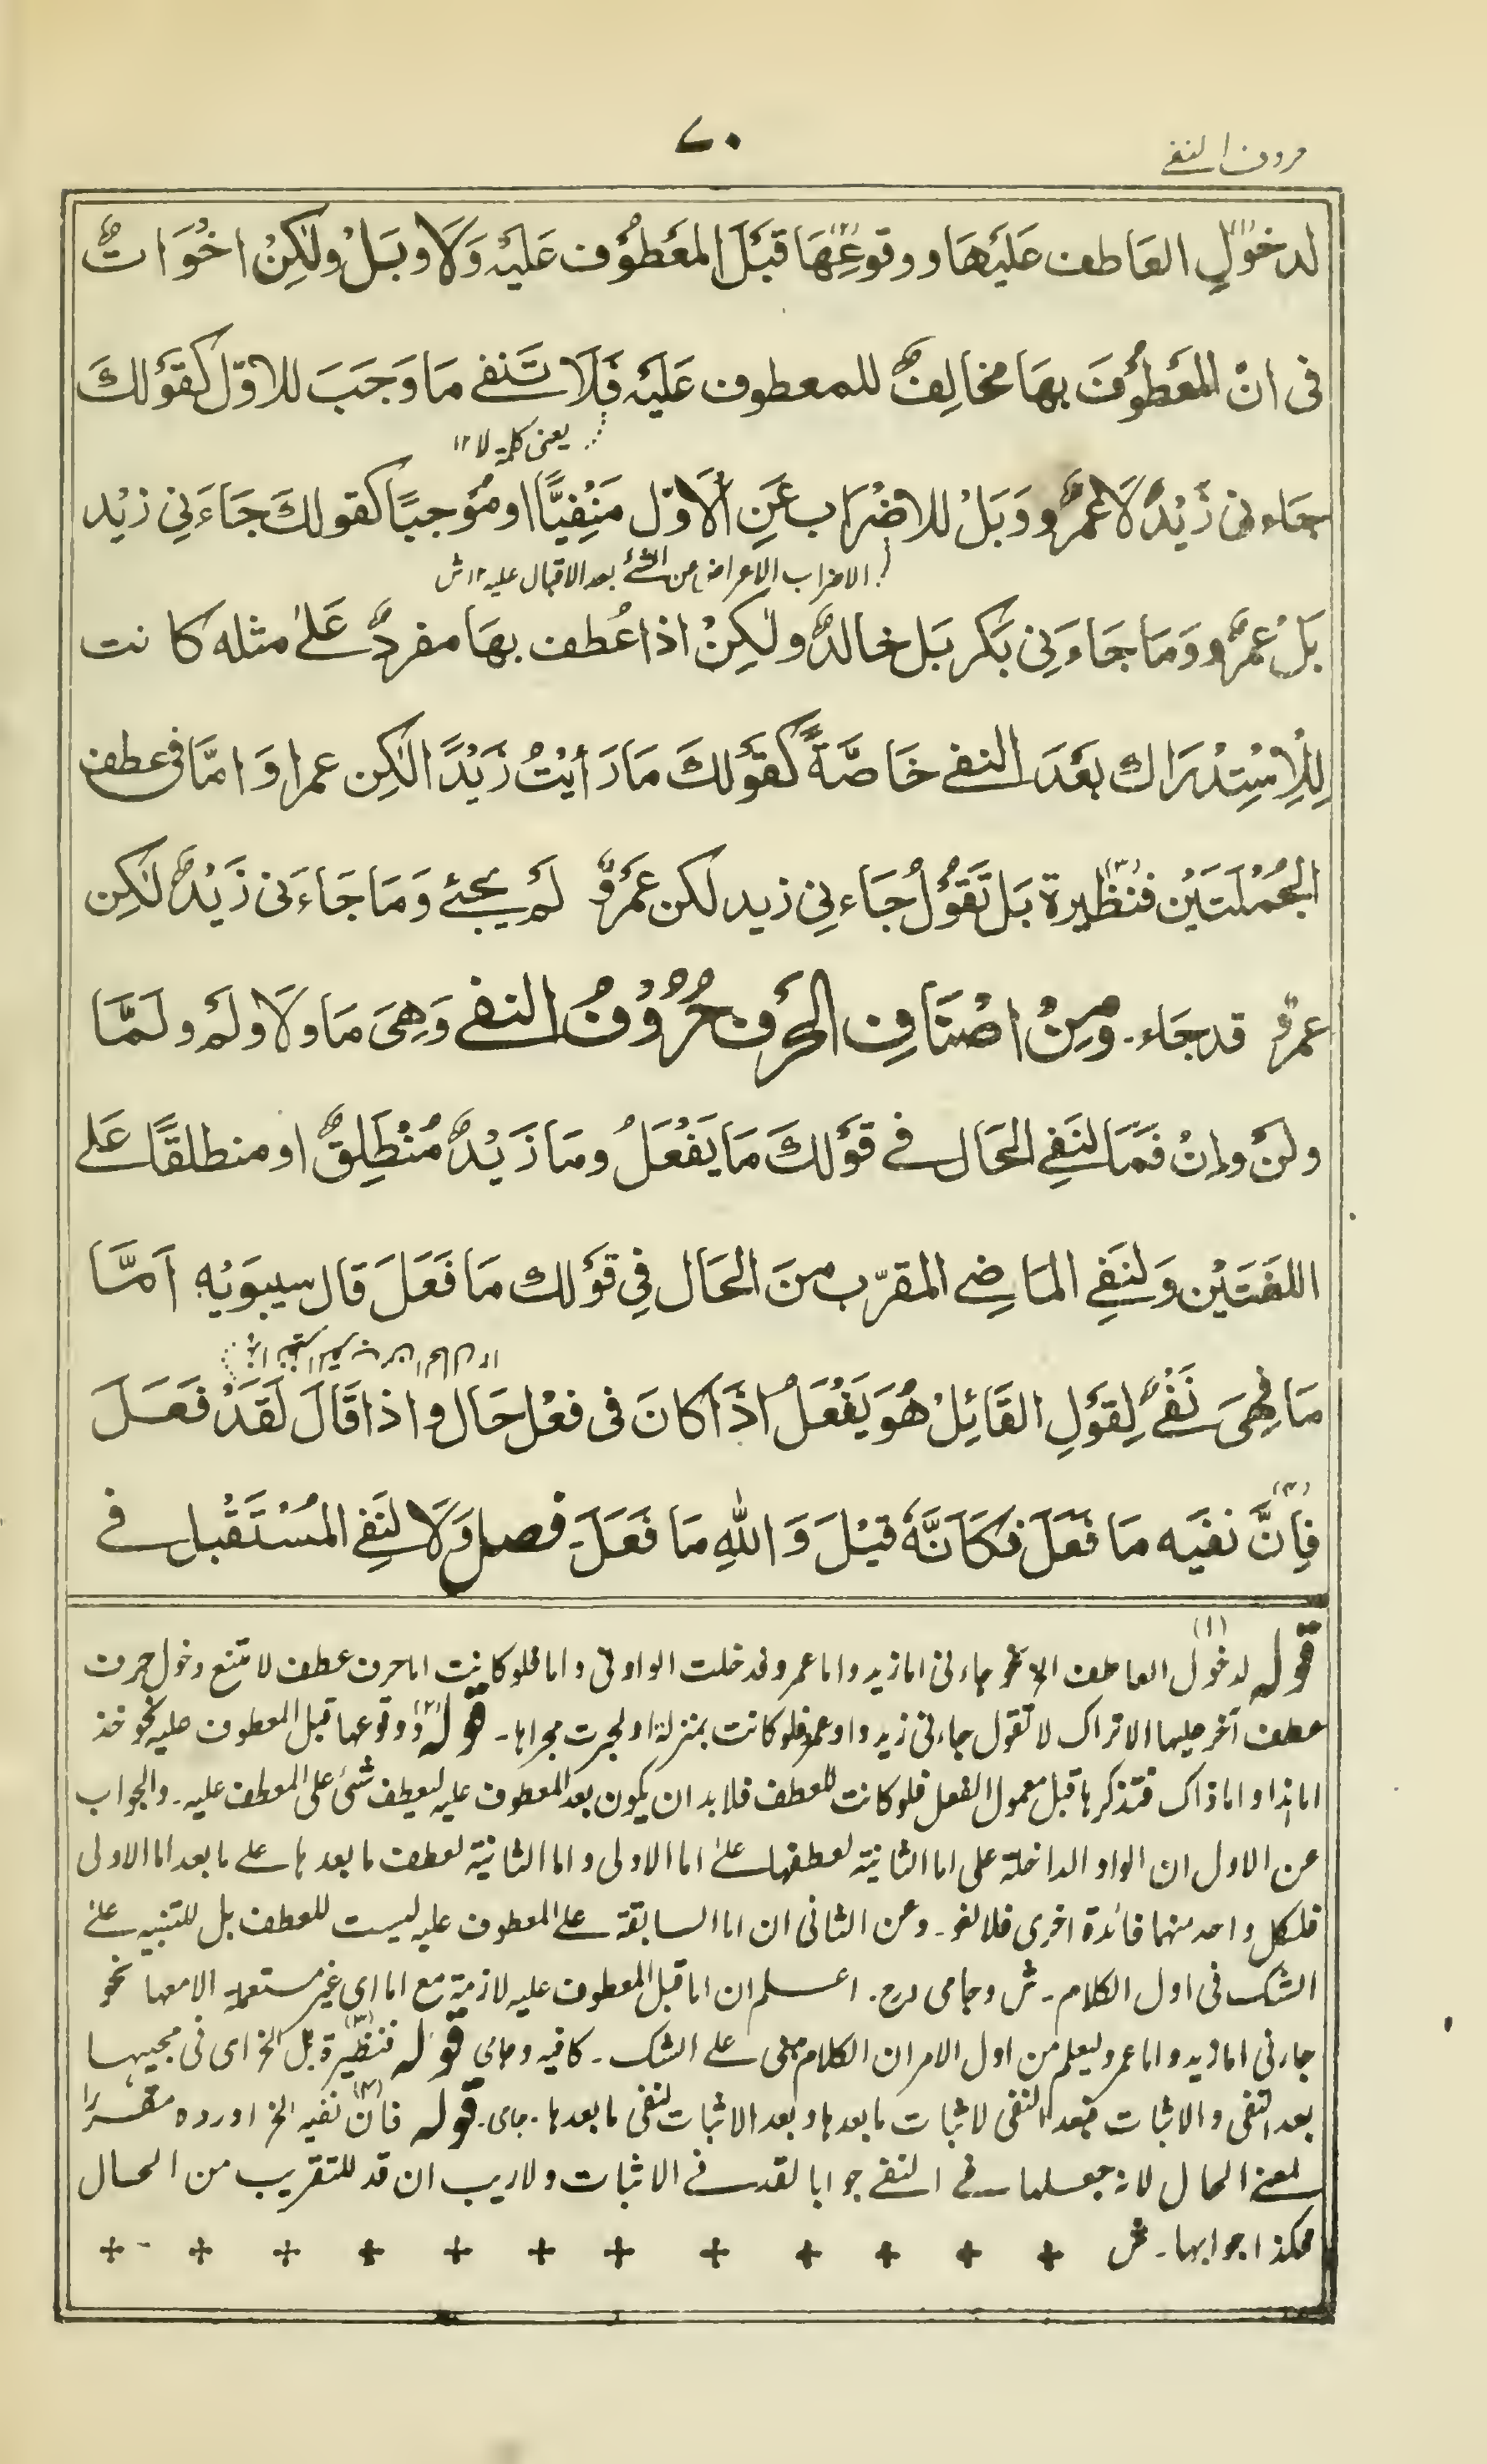 ٧٠
حروف النفے
لدخُوْلِ العَاطف عَلَيْهَا ووقوعِهَا قبْلَ المعَطوُف عَليْهِ وَلَا وبَلْ ولٰكِنْ اخْوَاتٌ
فی انّ المَعطُوْفَ بهَا مخالِفٌ للمعطوف عَليْهِ فَلَا تَنفے مَا وَجَبَ للاوّل كقَوْلكَ
یعنی كلمة لا ١٢
جَاءنی زَيْدٌ لَا عَمْرٌو وَبَلْ للاضْرَاب عَنِ الْاَوّل مَنْفِيًّا او مُوْجبًا كقولكَ جَاءَنِی زَيْد
الاضراب الاعراض من الشئ بعد الاقبال عليه ١٢ ش
بَلْ عمرٌو وَمَا جَاءَنِی بَكر بَل خالدٌ ولٰكِنْ اذا عُطف بهَا مفردٌ عَلیٰ مثله كانت
لِلْاِسْتِدْرَاك بعْدَ النفے خَاصَّةً كقَوْلكَ مَارَأيْتُ زَيْدًا لٰكِن عمرا وَامَّا فی عطف
الجُمْلَتَيْن فنظيرة بَل تَقوْلُ جَاءنِی زيد لكن عَمْرٌو لَمْ يجئ وَمَا جَاءَنی زَيْدٌ لٰكِن
عمرٌو قد جَاء۔ ومِنْ اصْنَافِ الحَرف حُرُوْفُ النفے وَهِیَ مَا ولَا ولَمْ ولَمَّا
ولنْ واِنْ فَمَا لنَفِی الحَال فے قَوْلكَ مَا يَفْعَلُ ومَا زَيْدٌ مُنْطَلِقٌ او منطلقًا عَلے
اللغَتَيْن وَلنَفِے المَاضِے المقرّب منَ الحَال فِی قَوْلك مَا فَعَلَ قال سيبوَيْهِ اَمَّا
مَا فهِیَ نَفْیٌ لِقَوْلِ القَائِلْ هُوَ يَفْعَلُ اذَا كانَ فی فعْل حَال واذا قَالَ لَقَدْ فَعَلَ
فِاِنَّ نفيَه مَا فَعَلَ فكَانَّهُ قيْلَ وَاللهِ مَا فَعَلَ۔ فصل وَلَا لنَفِے المُسْتَقْبل فے
قوله لدخول العاطف الخ نحو جاءنی اما زيد واما عمرو فدخلت الواو فی واما فلو كانت اما حرف عطف لامتنع دخول حرف
عطف آخر عليها الا تراك لا تقول جاءنی زيد واو عمرو فلو كانت بمنزلة او لجرت مجراها۔ قوله ووقوعها قبل المعطوف عليه نحو خذ
اما هذا واما ذاك فتذكرها قبل معمول الفعل فلو كانت للعطف فلابد ان يكون بعد المعطوف عليه ليعطف شئ علی المعطف عليه۔ والجواب
عن الاول ان الواو الداخلة علی اما الثانية لعطفها علیٰ اما الاولی واما الثانية لعطف ما بعدها علے ما بعد اما الاولی
فلكل واحد منهما فائدة اخری فلا لغو۔ وعن الثانی ان اما السابقة علے المعطوف عليه ليست للعطف بل للتنبيه علیٰ
الشك فی اول الكلام۔ ش وجامی درج۔ اعلم ان اما قبل المعطوف عليه لازمة مع اما ای غير مستعملة الا معها نحو
جاءنی اما زيد واما عمرو ليعلم من اول الامر ان الكلام مبنی علے الشك۔ كافيه وجامی قوله فنظيرة بل الخ ای فی مجيئها
بعد النفی والاثبات فبعد النفی لاثبات ما بعدها وبعد الاثبات لنفی ما بعدها۔ جامی۔ قوله فان نفيه الخ اورده مقررًا
لمعنے الحال لانه جعلها فے النفے جوابا لقد فے الاثبات ولاريب ان قد للتقريب من الحال
فكذا جوابها۔ ش